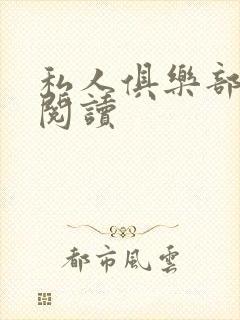 私人俱樂部
閱讀
都市風雲